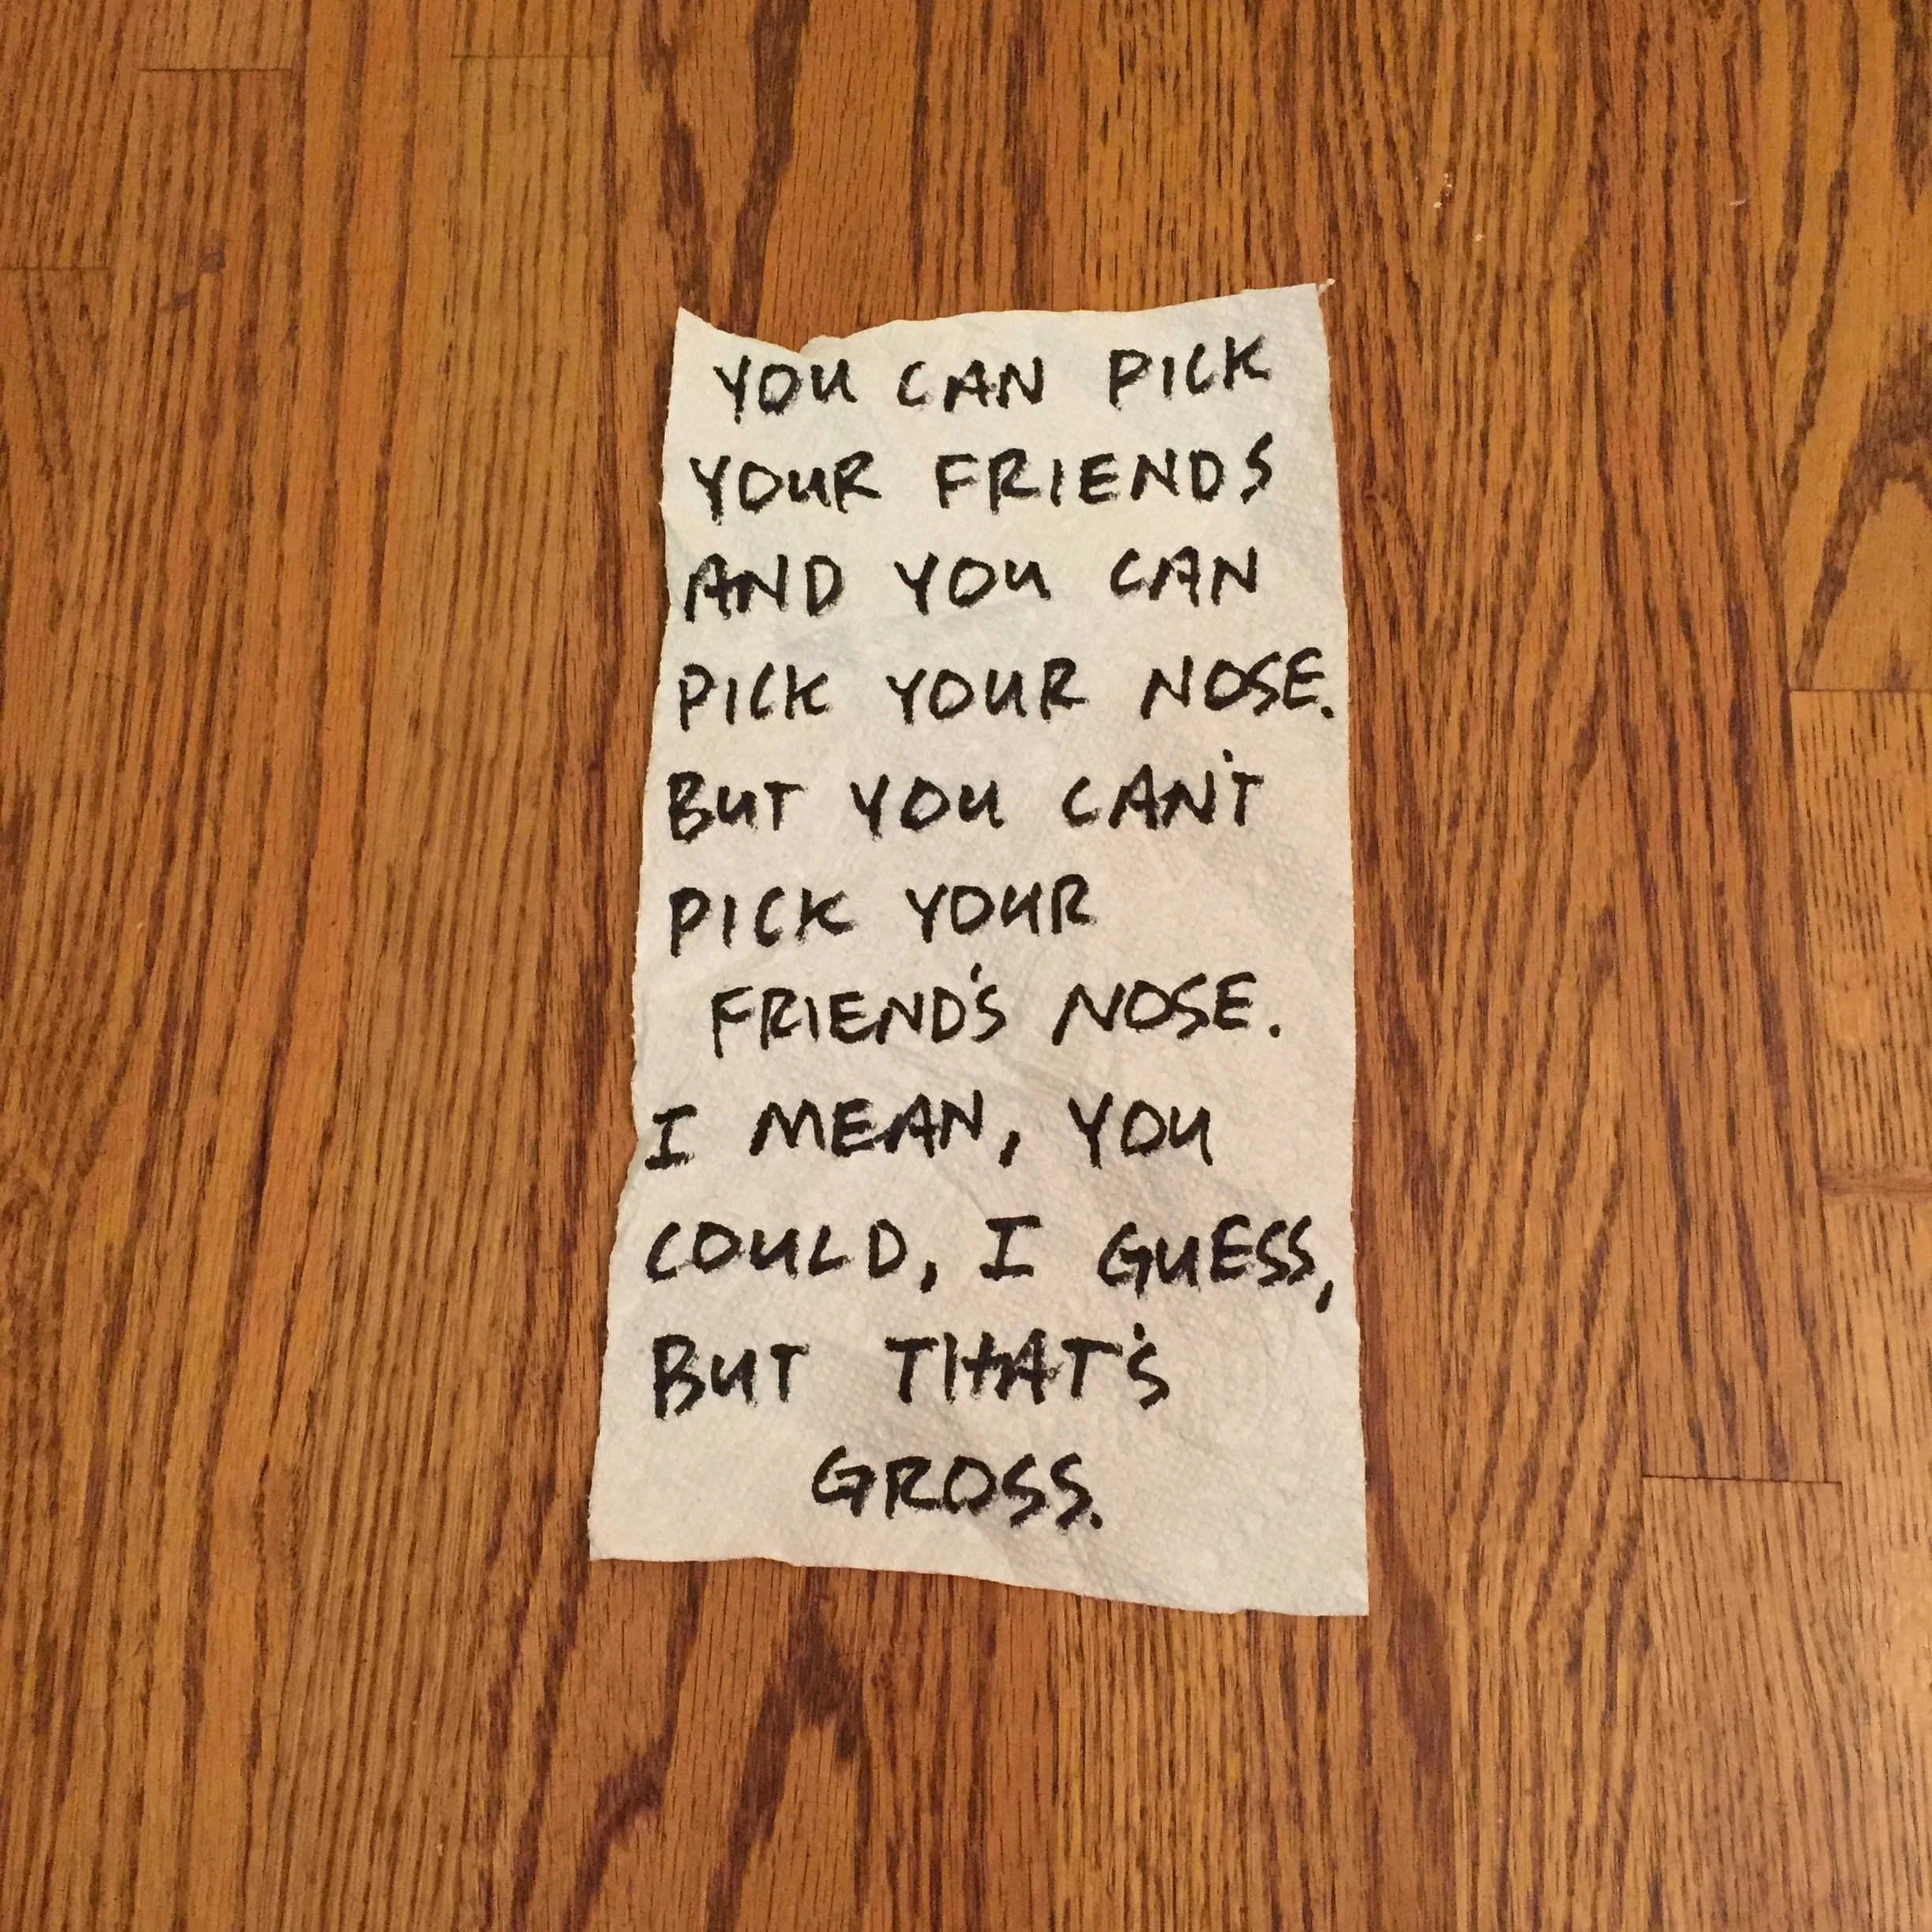 YOU CAN PICK
YOUR FRIENDS
AND YOU CAN
PICK YOUR NOSE.
BUT YOU CAN'T
PICK YOUR
FRIEND'S NOSE.
I MEAN, YOU
COULD, I GUESS,
BUT THAT'S
GROSS.